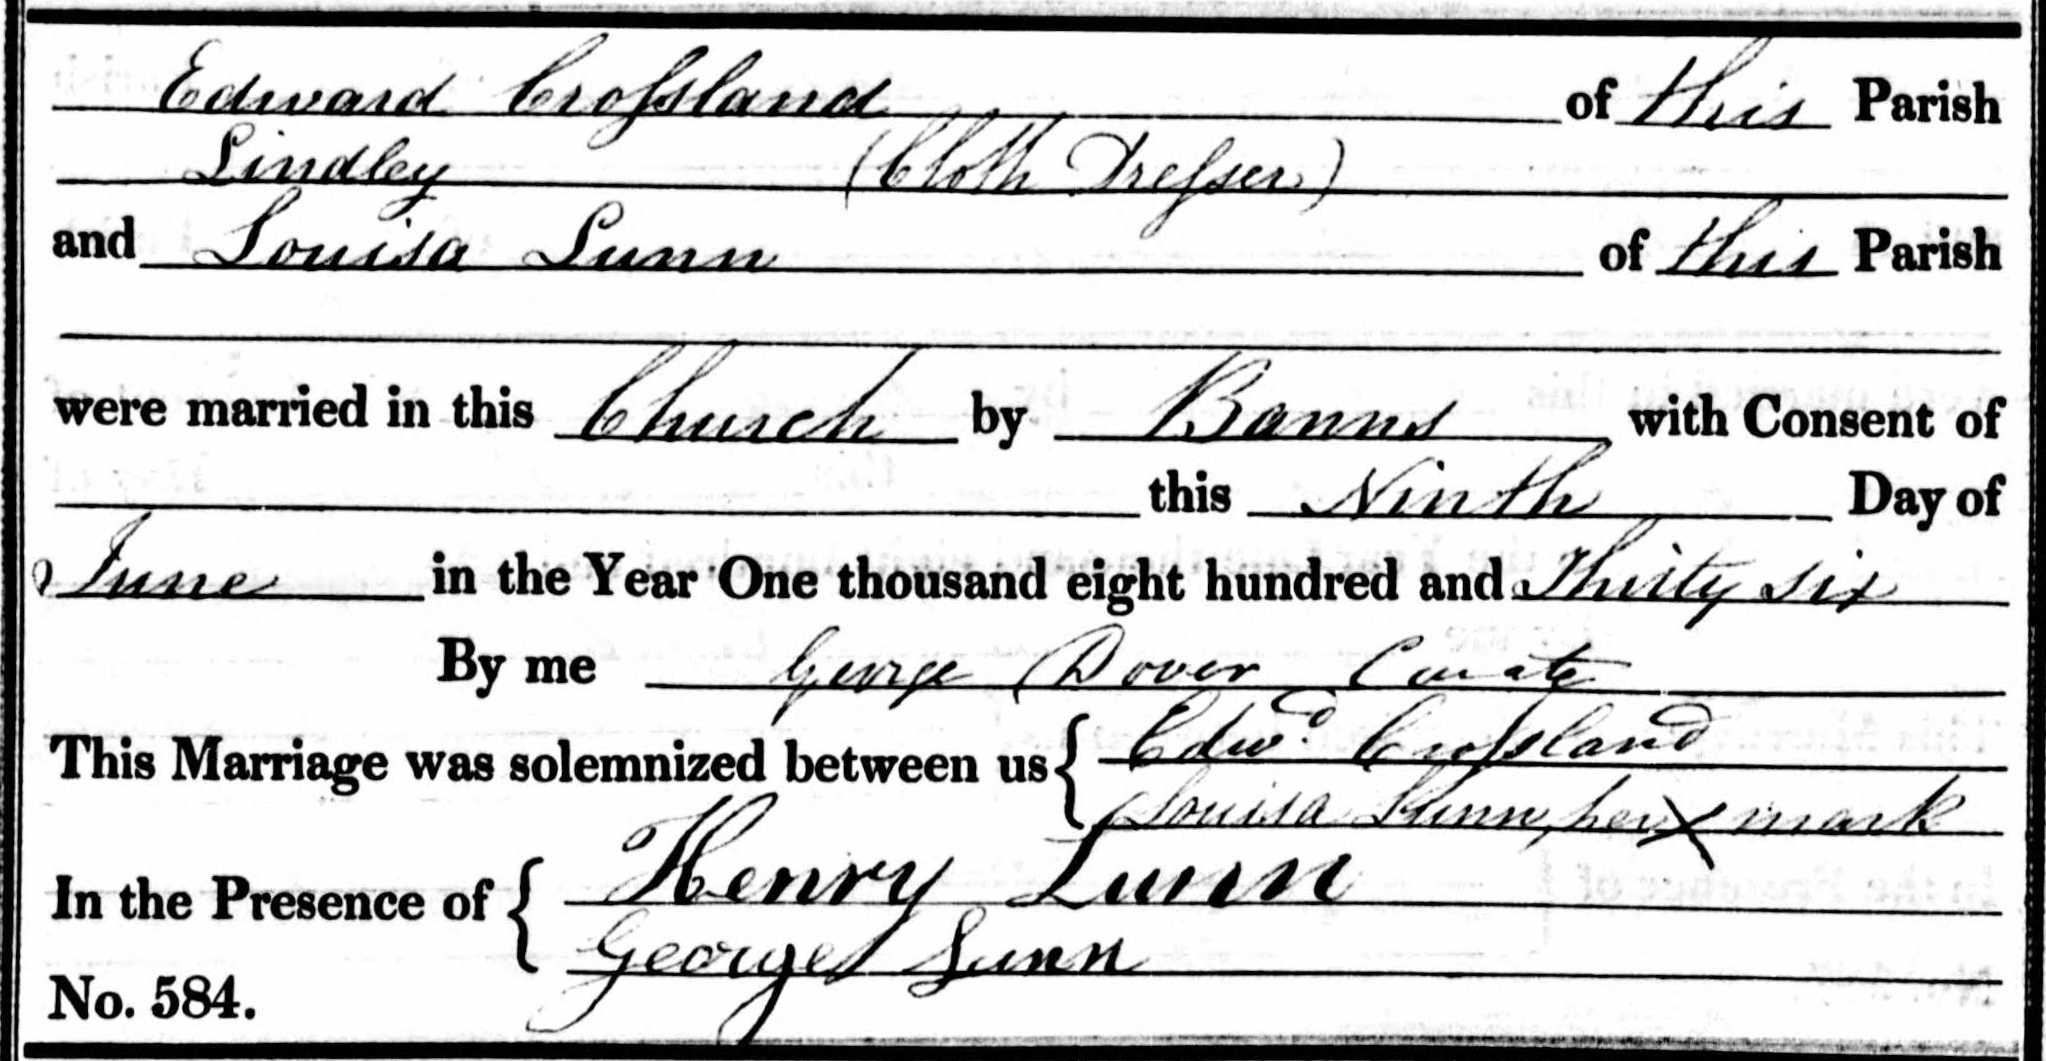 Edward Croſsland of this Parish
Lindley (Cloth Dreſser)
and Louisa Lunn of this Parish
were married in this Church by Banns with Consent of
this Ninth Day of
June in the Year One thousand eight hundred and Thirty six
By me George Dover Curate
This Marriage was solemnized between us { Edwd. Croſsland
Louisa Lunn, her X mark
In the Presence of { Henry Lunn
George Lunn
No. 584.